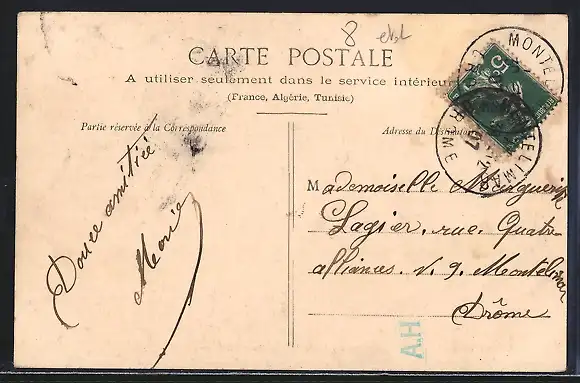 8
CARTE POSTALE
A utiliser seulement dans le service intérieur
(France, Algérie, Tunisie)
Partie réservée à la Correspondance
Adresse du Destinataire
MONTELIMAR
DROME
5
Douce amitiée
Marie
Mademoiselle Marguerite
Lagier. rue. Quatre
alliances. N. 9. Montélimar
Drôme
A.H